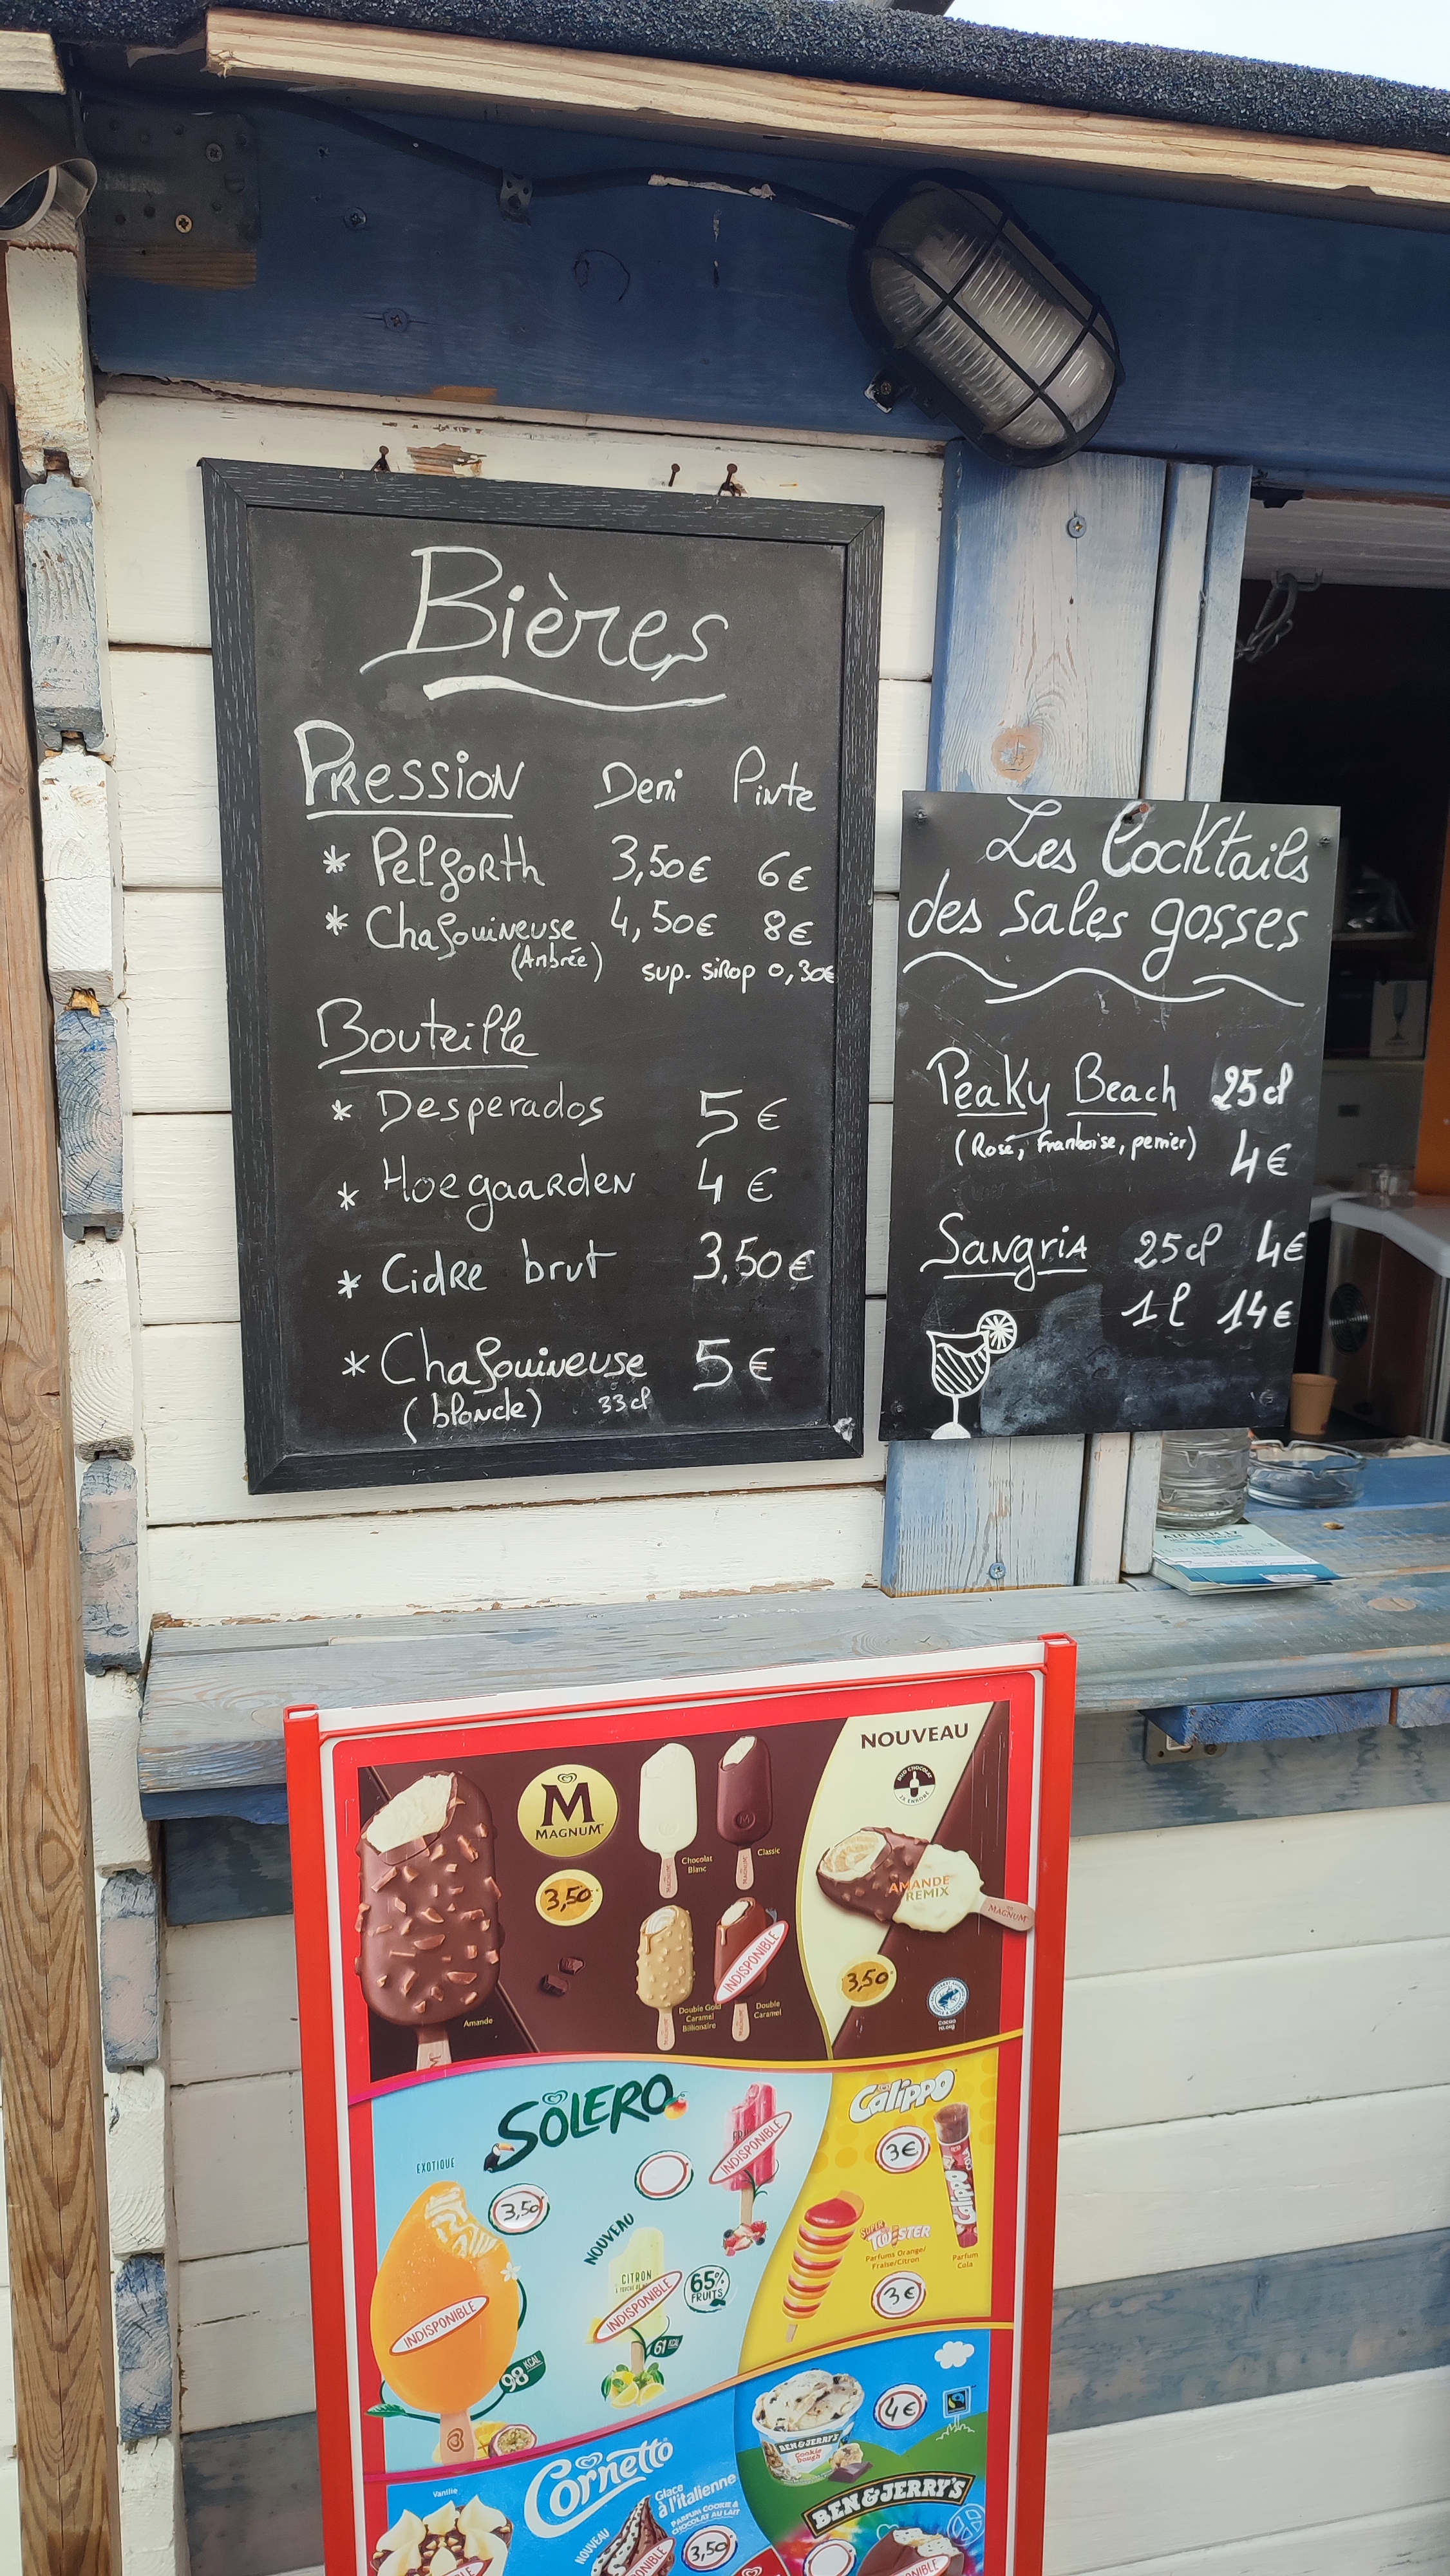 Bières
Pression Demi Pinte
* Pelforth 3,50€ 6€
* Chafouineuse 4,50€ 8€
(Ambrée) sup. sirop 0,30€
Bouteille
* Desperados 5€
* Hoegaarden 4€
* Cidre brut 3,50€
* Chafouineuse 5€
(blonde) 33cl
Les Cocktails
des sales gosses
Peaky Beach 25cl
(Rosé, Framboise, perrier) 4€
Sangria 25cl 4€
1l 14€
NOUVEAU
DUO CHOCOLAT
M
MAGNUM
Chocolat
Blanc
Classic
3,50
AMANDE
REMIX
MAGNUM
INDISPONIBLE
3,50
Amande
Double Gold
Caramel
Billionaire
Double
Caramel
SOLERO
EXOTIQUE
3,50
INDISPONIBLE
NOUVEAU
CITRON
INDISPONIBLE
65%
FRUITS
61 KCAL
INDISPONIBLE
98 KCAL
Calippo
3€
Calippo
SUPER
TWISTER
Parfums Orange/
Fraise/Citron
Parfum
Cola
3€
4€
BEN & JERRY'S
Cookie
Dough
BEN & JERRY'S
Cornetto
Vanille
Glace
à l'italienne
PARFUM COOKIE &
CHOCOLAT AU LAIT
NOUVEAU
3,50